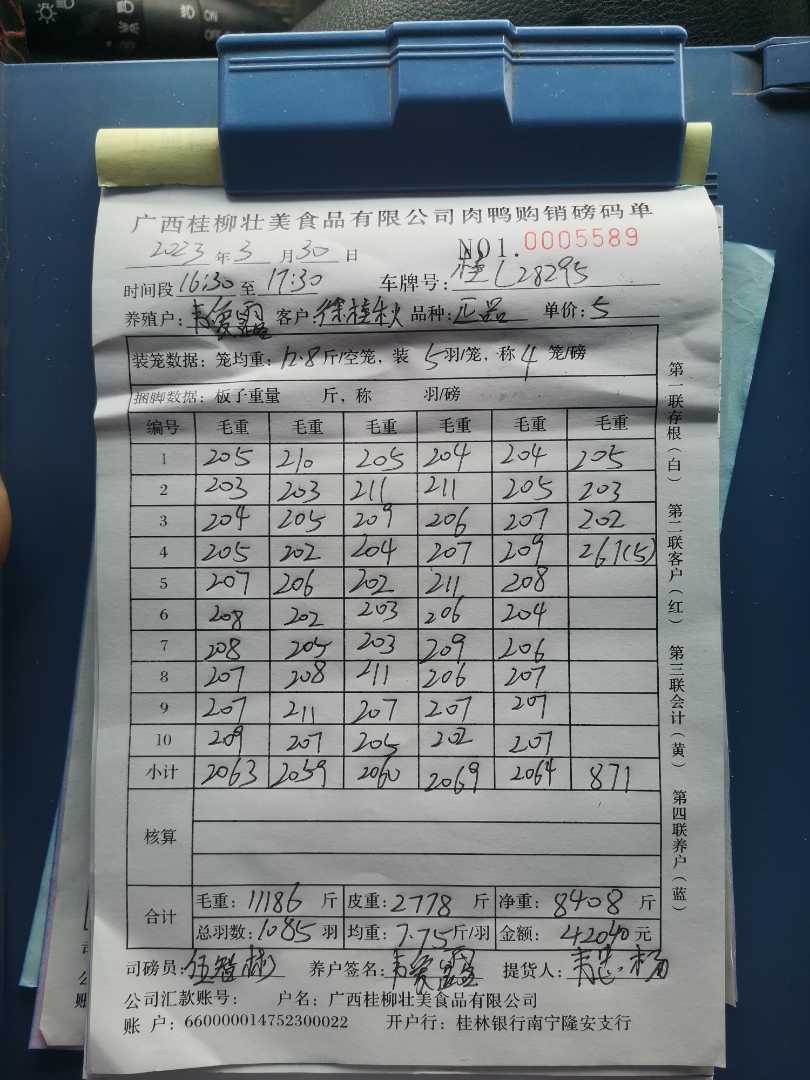 广西桂柳壮美食品有限公司肉鸭购销磅码单
2023 年 3 月 30 日 NO1. 0005589
时间段 16:30 至 17:30 车牌号: 桂L28295
养殖户: 韦爱露 客户: 徐桂秋 品种: 正品 单价: 5
装笼数据: 笼均重: 12.8 斤/空笼, 装 5 羽/笼, 称 4 笼/磅
捆脚数据: 板子重量 斤, 称 羽/磅
编号 毛重 毛重 毛重 毛重 毛重 毛重
1 205 210 205 204 204 205
2 203 203 211 211 205 203
3 204 205 209 206 207 202
4 205 202 204 207 209 261(5)
5 207 206 202 211 208
6 208 202 203 206 204
7 208 205 203 209 206
8 207 208 211 206 207
9 207 211 207 207 207
10 209 207 205 202 207
小计 2063 2059 2060 2069 2064 871
核算
合计 毛重: 11186 斤 皮重: 2778 斤 净重: 8408 斤
总羽数: 1085 羽 均重: 7.75 斤/羽 金额: 42040 元
司磅员: 伍智彬 养户签名: 韦爱露 提货人:
公司汇款账号: 户名: 广西桂柳壮美食品有限公司
账 户: 660000014752300022 开户行: 桂林银行南宁隆安支行
第一联存根(白) 第二联客户(红) 第三联会计(黄) 第四联养户(蓝)
ON